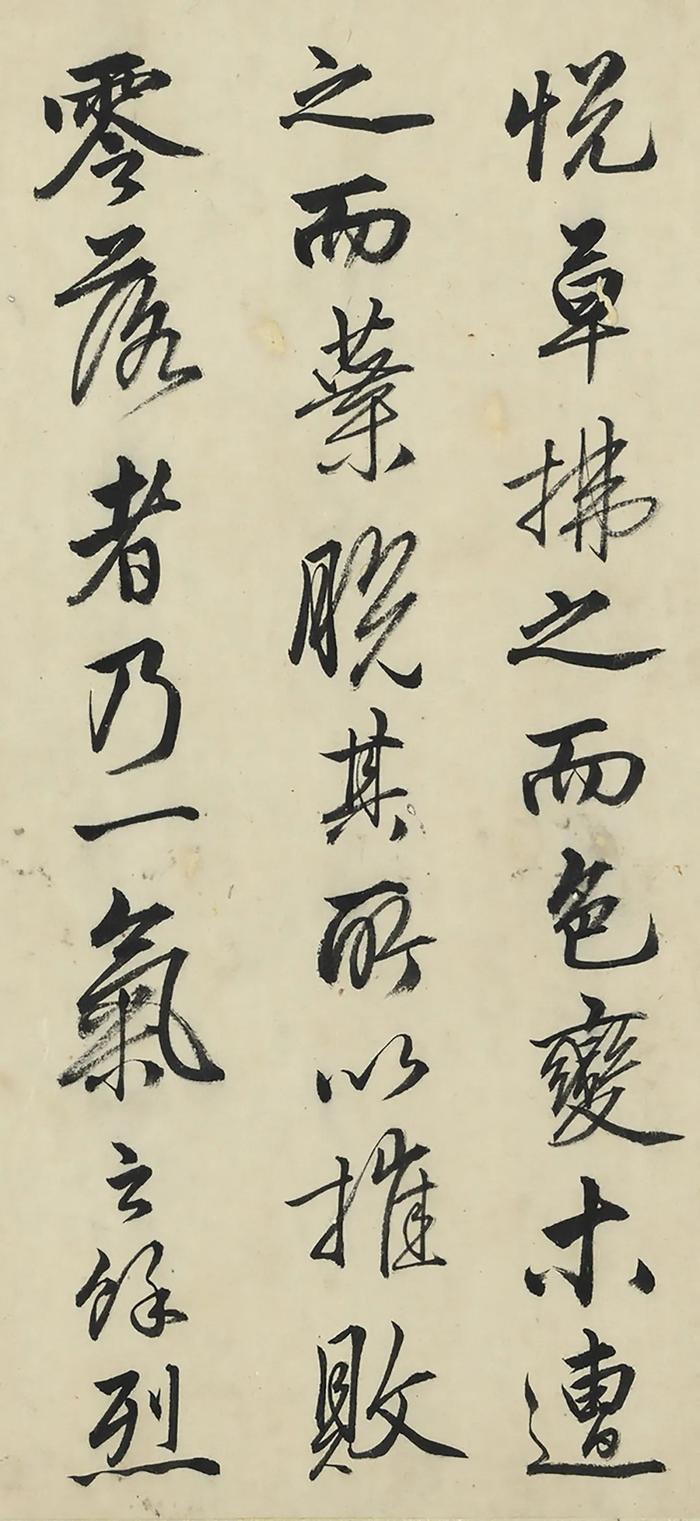 悦草拂之而色變木遭
之而葉脫其所以摧敗
零落者乃一氣之餘烈